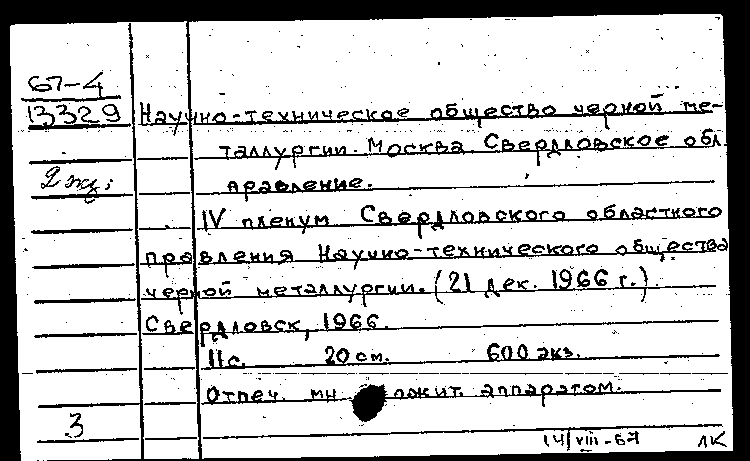 67-4
13329
2 экз.
Научно-техническое общество черной ме-
таллургии. Москва. Свердловское обл.
правление.
IV пленум Свердловского областного
правления Научно-технического общества
черной металлургии. (21 дек. 1966 г.)
Свердловск, 1966.
11 с. 20 см. 600 экз.
Отпеч. мн ложит. аппаратом.
3
14/VIII-67 ЛК